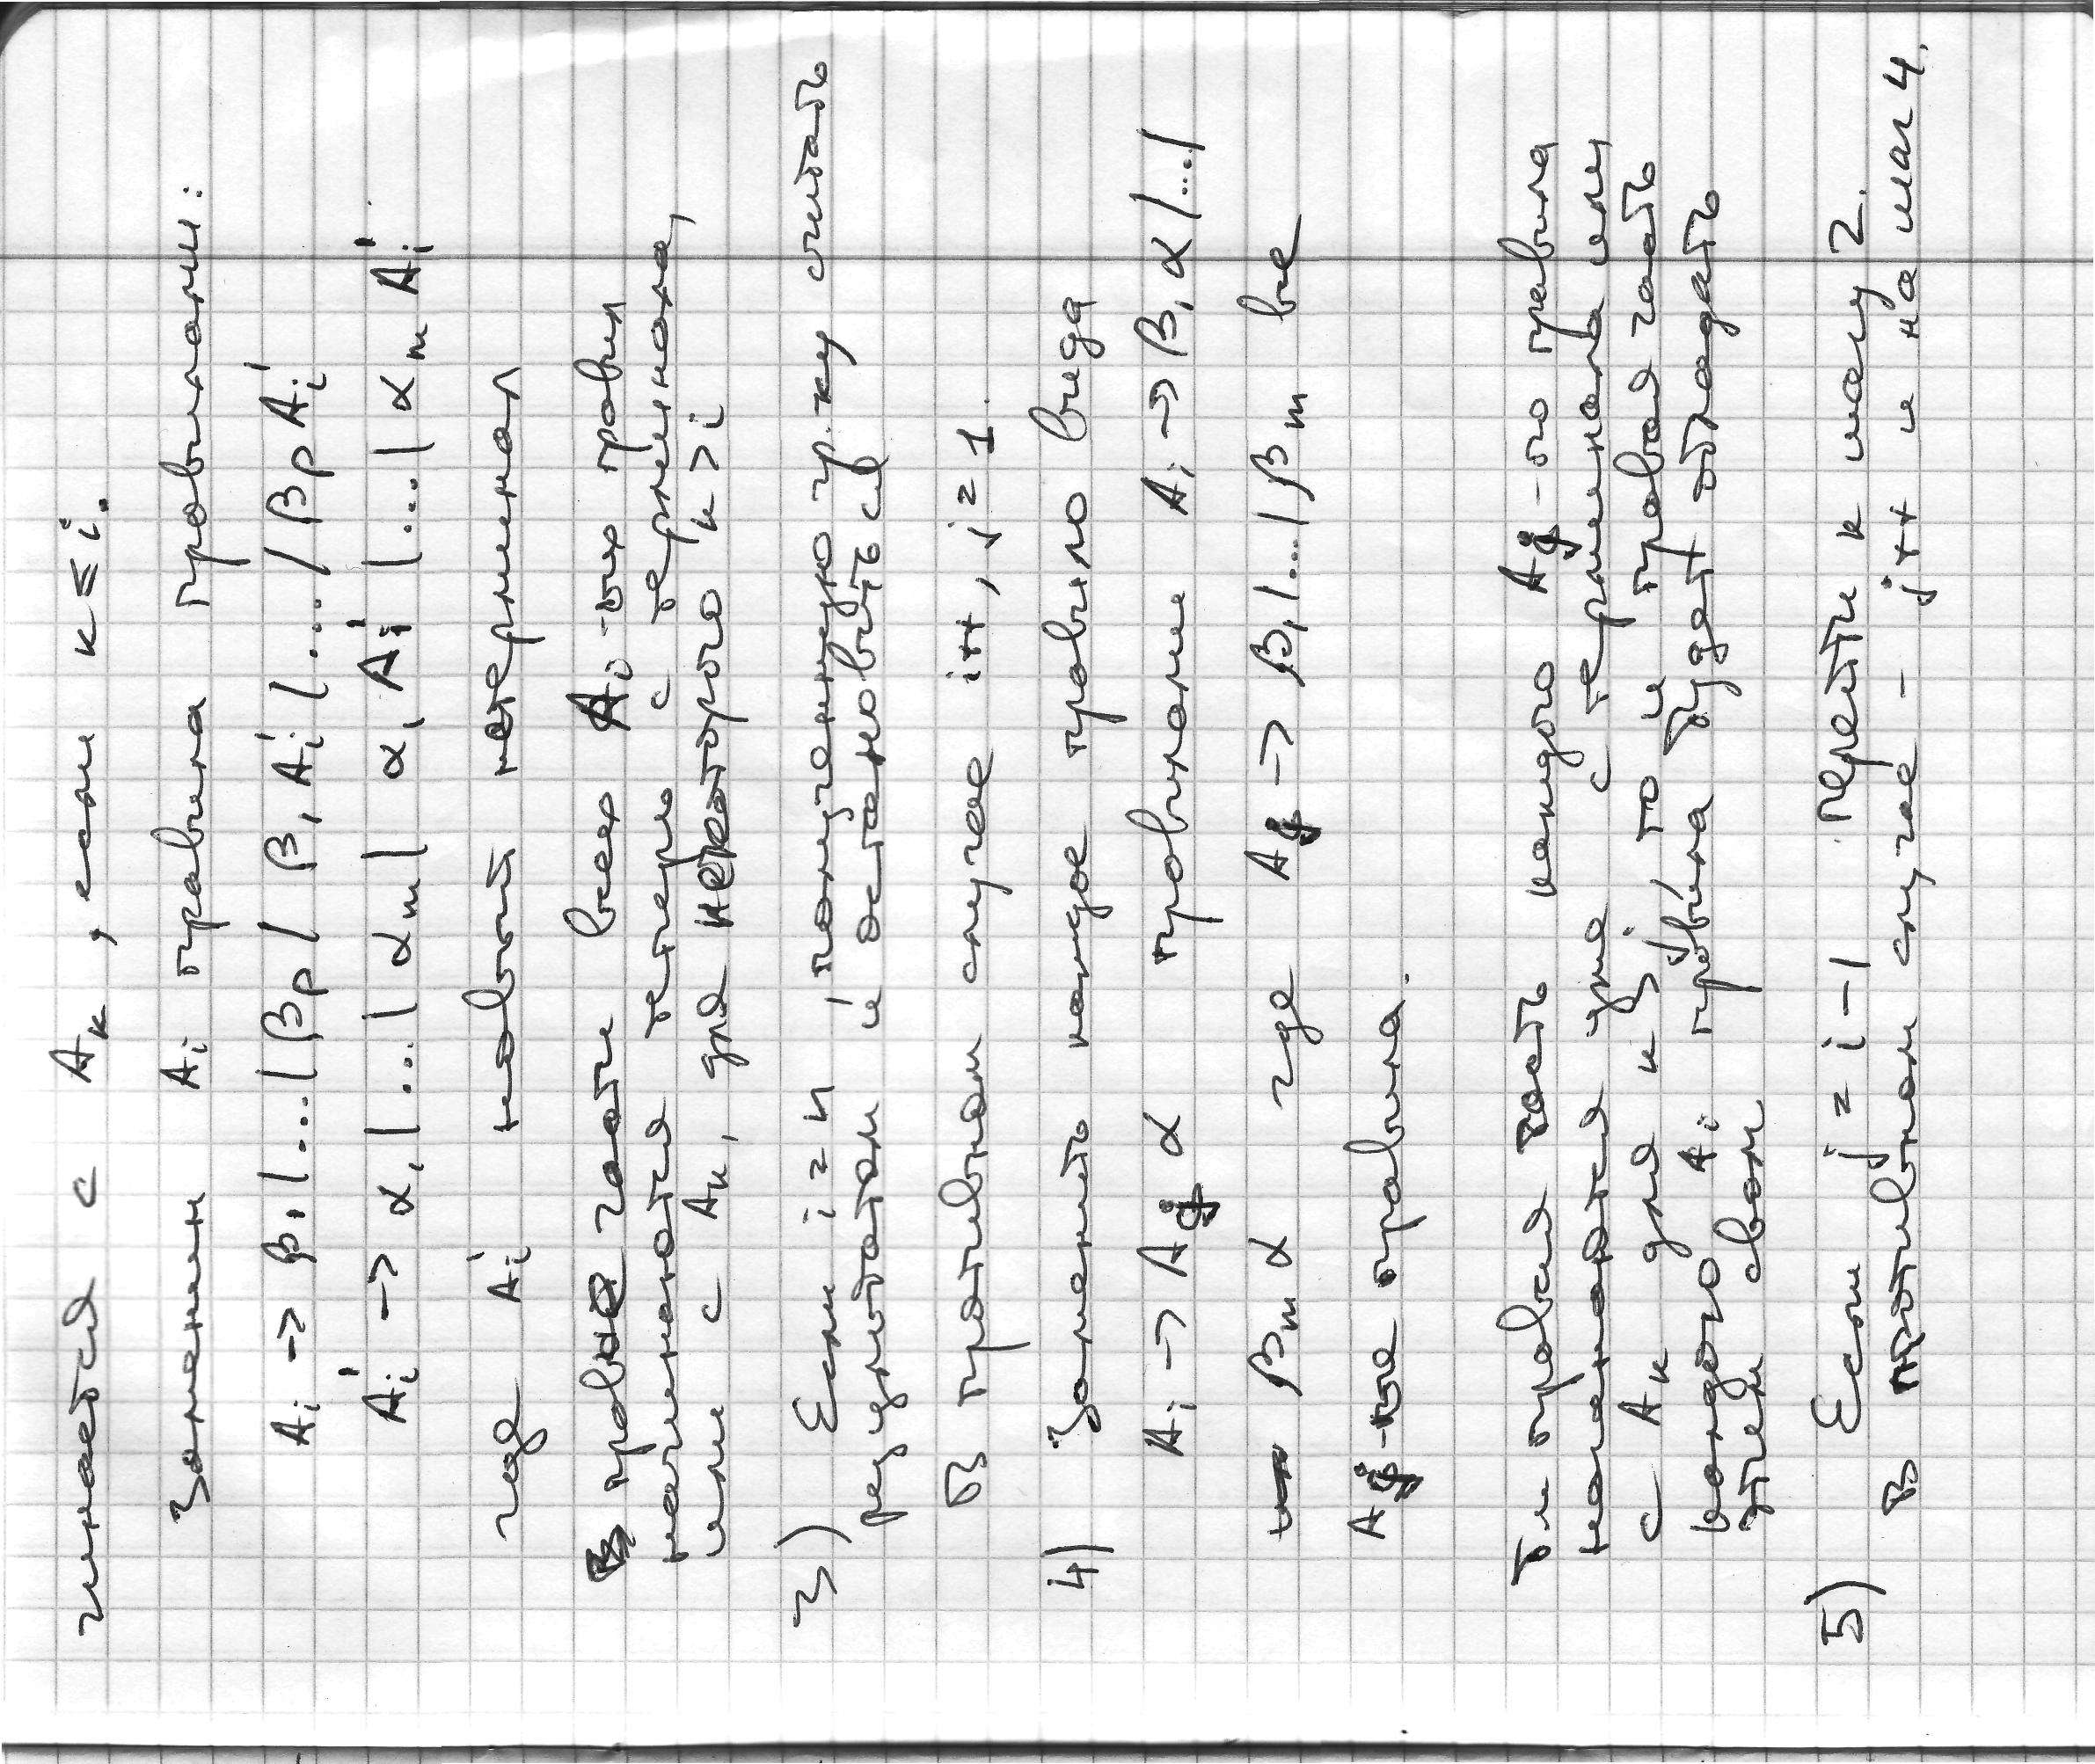 чинается с Aк, если к ≤ i.
Заменим Ai правила правилами:
Ai -> β1 |...| βp | β1 Ai' |...| βp Ai'
Ai' -> α1 |...| αm | α1 Ai' |...| αm Ai'
где Ai' новый нетерминал
правые части всех Ai-ых правил
начинаются теперь с терминала,
или с Aк, для некоторого к > i
3) Если i = n, полученную гр-ку считать
результатом и остановиться
В противном случае i++, j = 1.
4) Заменить каждое правило вида
Ai -> Aj α правилами Ai -> β1 α |...|
βm α где Aj -> β1 |...| βm все
Aj-ые правила.
Т.к правая часть каждого Aj-ого правила
начинается уже с терминала или
с Aк для к > j, то и правая часть
каждого Ai правила будет обладать
этим свом
5) Если j = i-1 перейти к шагу 2.
В противном случае - j++ и на шаг 4.